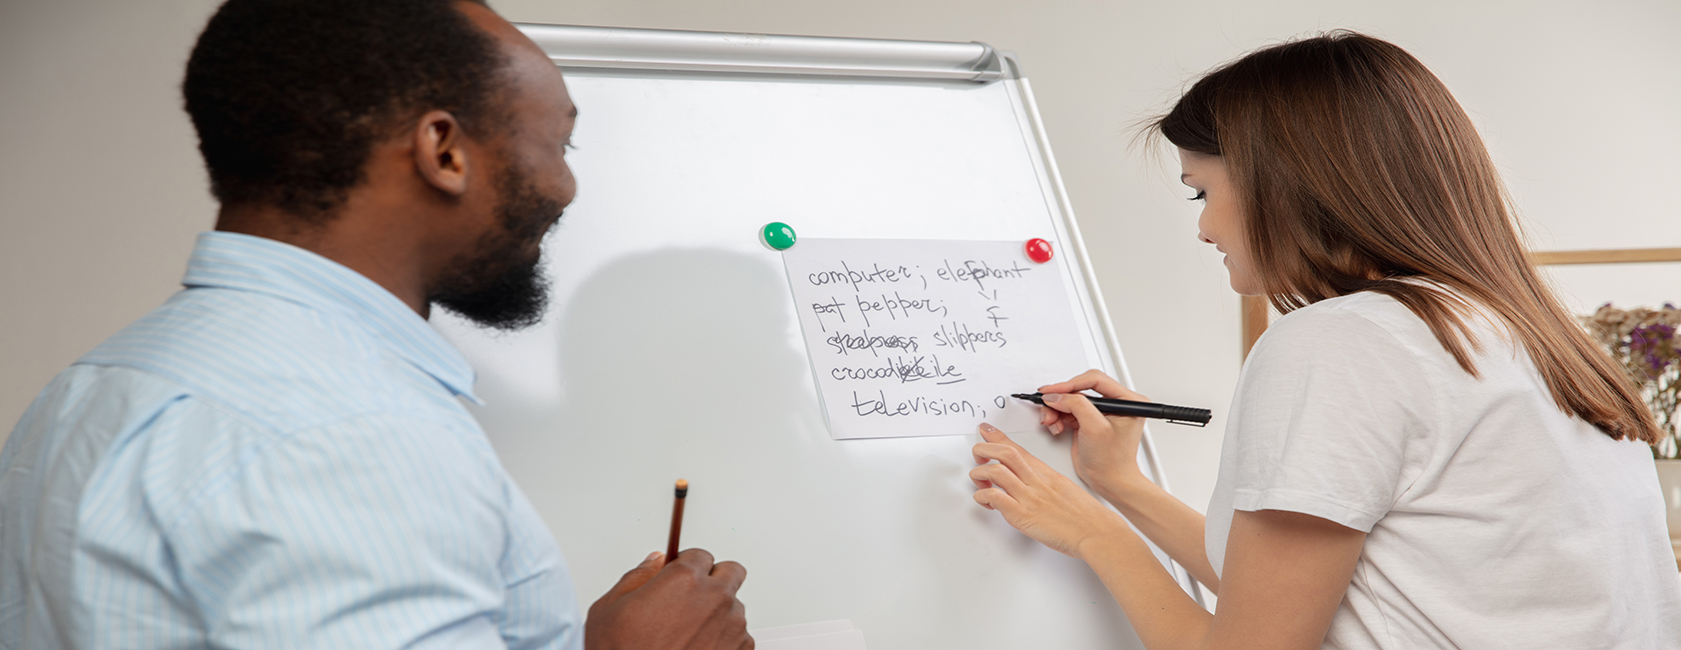 computer; elephant
pepper;
f
slippers
crocodile
television; o